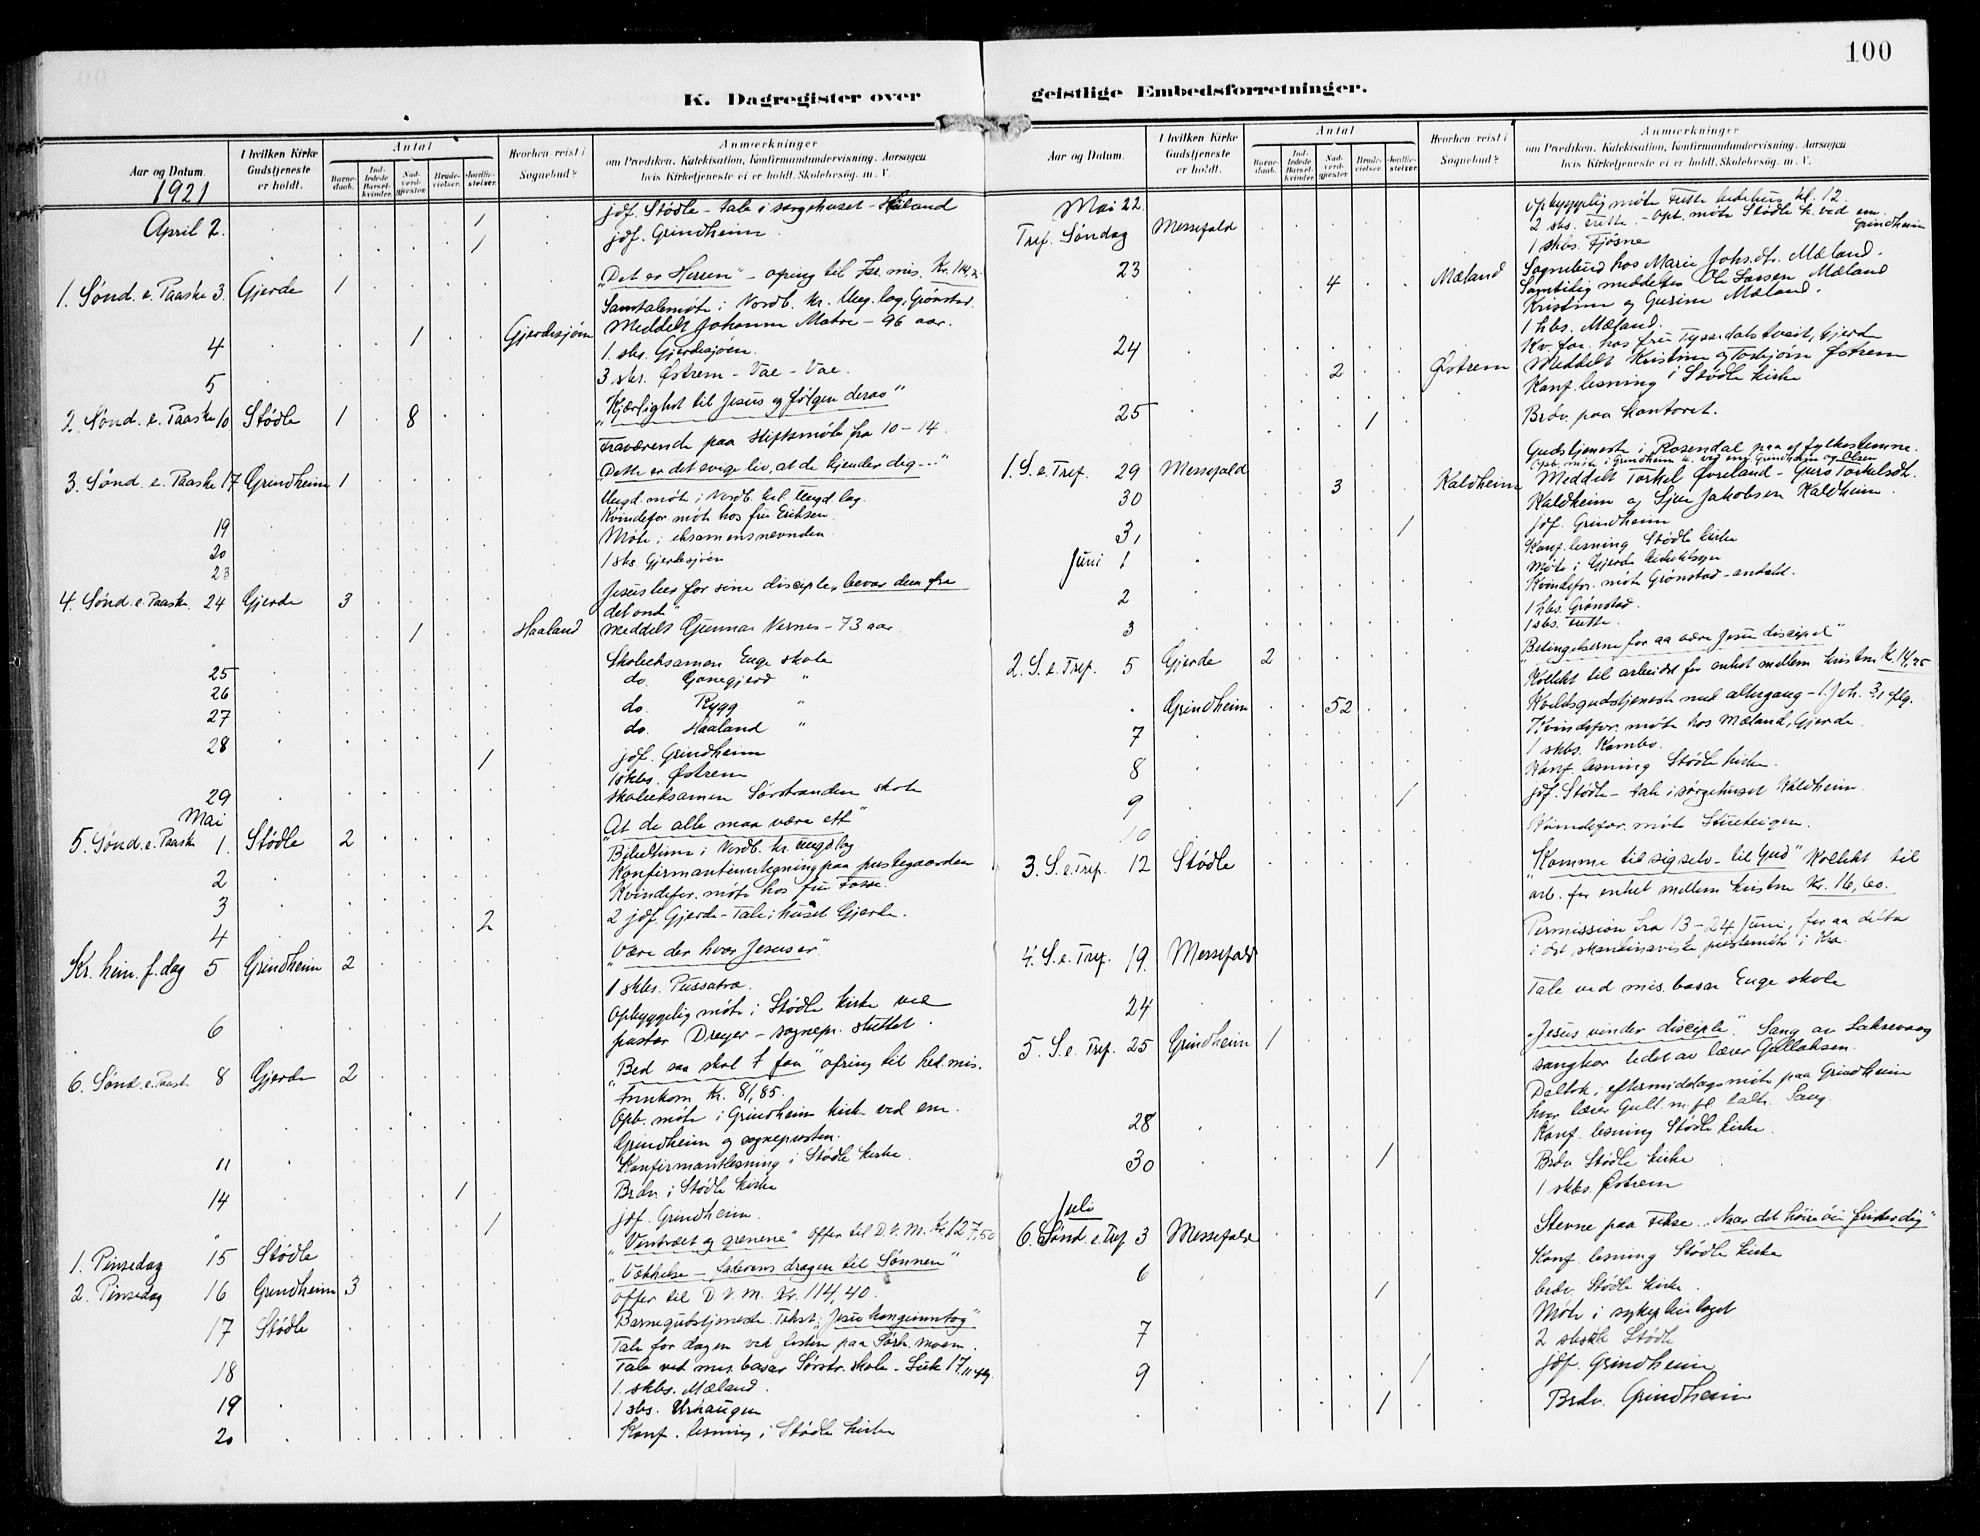 100
K. Dagregister over geistlige Embedsforretninger.
Aar og Datum.
I hvilken Kirke Gudstjeneste er holdt.
Antal
Barnedaab.
Indledede Barselkvinder.
Nadverdgjester.
Brudevielser.
Jordfæstelser.
Hvorhen reist i Sognebud?
Anmærkninger
om Prædiken. Katekisation, Konfirmandundervisning. Aarsagen
hvis Kirketjeneste ei er holdt. Skolebesøg. m. V.
1921
April 2. 1 jdf. Stødle - tale i sørgehuset - Håland
1 jdf. Grindheim
1. Sønd. e. Paaske 3. Gjerde 1 "Det er Herren" - ofring til Isr. mis. Kr.
Samtalemøte i Nordb. kr. Ung. lag, Grønstad.
4 1 Gjerdesjøen Meddelt Johanna Matre - 96 aar.
1. sbs. Gjerdesjøen.
5 3 Østrem - Vae - Vae.
2. Sønd. e. Paaske 10 Stødle 1 8 "Kjærlighet til Jesus og følgen derav"
Fraværende paa stiftsmøte fra 10-14.
3. Sønd. e. Paaske 17 Grindheim 1 "Dette er det evige liv, at de kjender dig -.."
Ungd. møte i Nordb. kr. Ungd. lag.
19 Kvindefor. møte hos fru Eriksen.
20 Møte i eksamensnevnden
23 1 sbs Gjerdesjøen
4. Sønd. e. Paaske. 24 Gjerde 3 Jesus beer for sine disciple, "bevar dem fra
det onde"
1 Haaland meddelt Gunnar Vernes - 73 aar.
25 Skoleeksamen Enge skole
26 do. Gonegjerd "
27 do. Rygg "
28 do. Haaland "
1 jdf. Grindheim
1 skbs. Østrem
29 skoleeksamen Sørstranden skole
Mai
5. Sønd. e. Paaske 1. Stødle 2 "At de alle maa være ett"
Bibeltime i Nordb. kr. ungd. lag.
2 Konfirmantinnskrivning paa prestegaarden
3 Kvindefor. møte hos fru Fosse.
4 2 2 jdf. Gjerde - Tale i huset Gjerde.
Kr. him. f. dag 5 Grindheim 2 "Være der hvor Jesus er"
1 skbs. Tussatræ.
6 Opbyggelig møte i Stødle kirke ved
pastor Dreyer - sognepr. sluttet.
6. Sønd. e. Paaske 8 Gjerde 2 "Bed saa skal I faa" ofring til hed. mis.
Innkom kr. 81,85.
Opb. møte i Grindheim kirke ved em.
Grindheim og sognepresten.
11 Konfirmantlesning i Stødle kirke.
14 1 Brdv. i Stødle kirke
" 1 jdf. Grindheim.
1. Pinsedag 15 Stødle "Vintræet og grenene" Offer til D. V. M. Kr. 127,50
2. Pinsedag 16 Grindheim 3 "Vækkelse - Faderens dragen til Sønnen"
offer til D. V. M. Kr. 114,40.
17 Stødle Barnegudstjeneste. Tekst: "Jesu kongeinntog"
Tale for dagen ved festen paa Sørh. moen.
18 Tale ved mis. basar Sørstr. skole - Luk 17, 11 flg.
1. skbs. Mæland.
19 1 sbs. Urhaugen
20 Konf. lesning i Stødle kirke
Aar og Datum.
I hvilken Kirke Gudstjeneste er holdt.
Antal
Barnedaab.
Indledede Barselkvinder.
Nadverdgjester.
Brudevielser.
Jordfæstelser.
Hvorhen reist i Sognebud?
Anmærkninger
om Prædiken. Katekisation, Konfirmandundervisning. Aarsagen
hvis Kirketjeneste ei er holdt. Skolebesøg. m. V.
Mai 22. Opbyggelig møte Fitte bedehus kl. 12.
Tref. Søndag Messefald 2 sbs. Fitte. - Opb. møte Stødle k. ved em. Grindheim
1 skbs. Fjøsne
23 Mæland Sognebud hos Marie Johs.dtr. Mæland.
4 Samtidig meddeltes Ole Larsen Mæland
Kristine og Gurine Mæland.
1 hbs. Mæland.
24 Kv. for. hos fru Tyssedalstveit, Gjerde
2 Østrem Meddelt Kristine og Torbjørn Østrem
Konf. lesning i Stødle kirke
25 1 Brdv. paa kontoret.
Gudstjeneste i Rosendal paa et fylkesstemne.
1. S. e. Tref. 29 Messefald Opb. møte i Grindheim k. ved em. Grindheim og Olsen
30 3 Kaldheim Meddelt Torkel Øveland - Guro Torkelsdt.
Kaldheim og Sjur Jakobsen Kaldheim.
31 1 jdf. Grindheim
Konf. lesning Stødle kirke
Juni 1 Møte i Gjerde
Kvindefor. møte Grønstad - andakt.
2 1 hbs. Grønstad.
3 1 sbs. Fitte.
2. S. e. Tref. 5 Gjerde 2 "Betingelserne for aa være Jesu discipel"
Kollekt til arbeidet for enhet mellem kristne K. 14,25
Grindheim 52 Kveldsgudstjeneste med altergang - 1. Joh. 3,1 flg.
7 Kvindefor. møte hos Mæland, Gjerde.
1 skbs. Kambo.
8 Konf. lesning Stødle kirke.
9 1 jdf. Stødle - tale i sørgehuset Kaldheim.
10 Kvindefor. møte Stuteigen.
3. S. e. Tref. 12 Stødle "Komme til sig selv - til Gud" Kollekt til
arb. for enhet mellem kristne Kr. 16,60.
Permission fra 13-24 Juni, for aa delta
4. S. e. Tref. 19. Messefald i det skandinaviske prestemøte i Kra.
24 Tale ved mis. basar Enge skole
5. S. e. Tref. 25 Grindheim 1 "Jesus vinder disciple". Sang av Laksevaag
sangkor ledet av lærer Gullaksen.
Deltok i eftermiddagsmøte paa Grindheim
hvor lærer Gull. m. fl. talte. Sang.
28 Konf. lesning Stødle kirke.
30 1 Brdv. Stødle kirke
1 skbs. Østrem
Juli
6. Sønd. e. Tref. 3 Messefald Stevne paa Fikse. "Naar det høire øie frister dig"
Konf. lesning Stødle kirke
6 1 brdv. Stødle kirke.
Møte i sykepleielaget
7 2 Stødle
9 1 jdf. Grindheim
1 Brdv. Grindheim